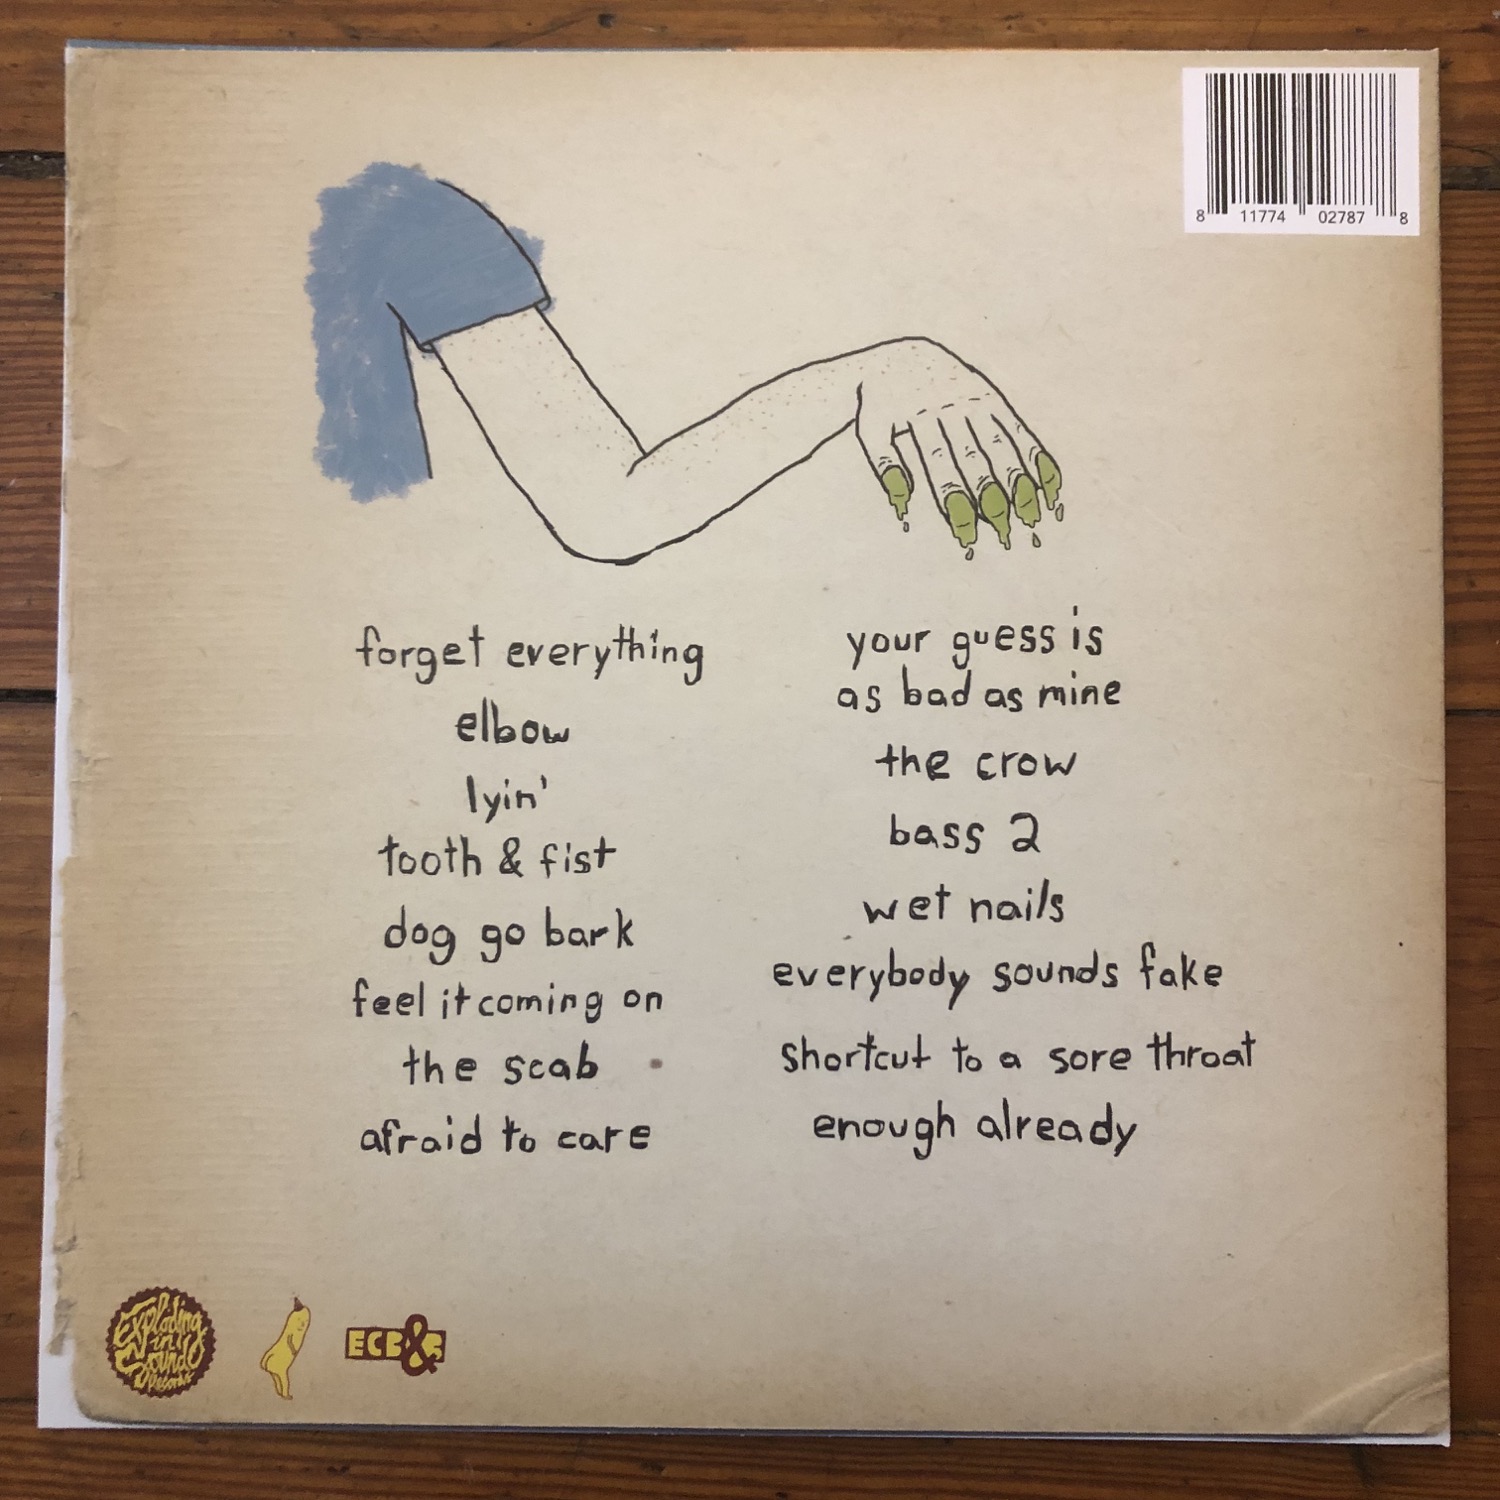 8 11774 02787 8
forget everything
elbow
lyin'
tooth & fist
dog go bark
feel it coming on
the scab
afraid to care
your guess is
as bad as mine
the crow
bass 2
wet nails
everybody sounds fake
shortcut to a sore throat
enough already
Exploding
in
Sound
Records
ECB&5